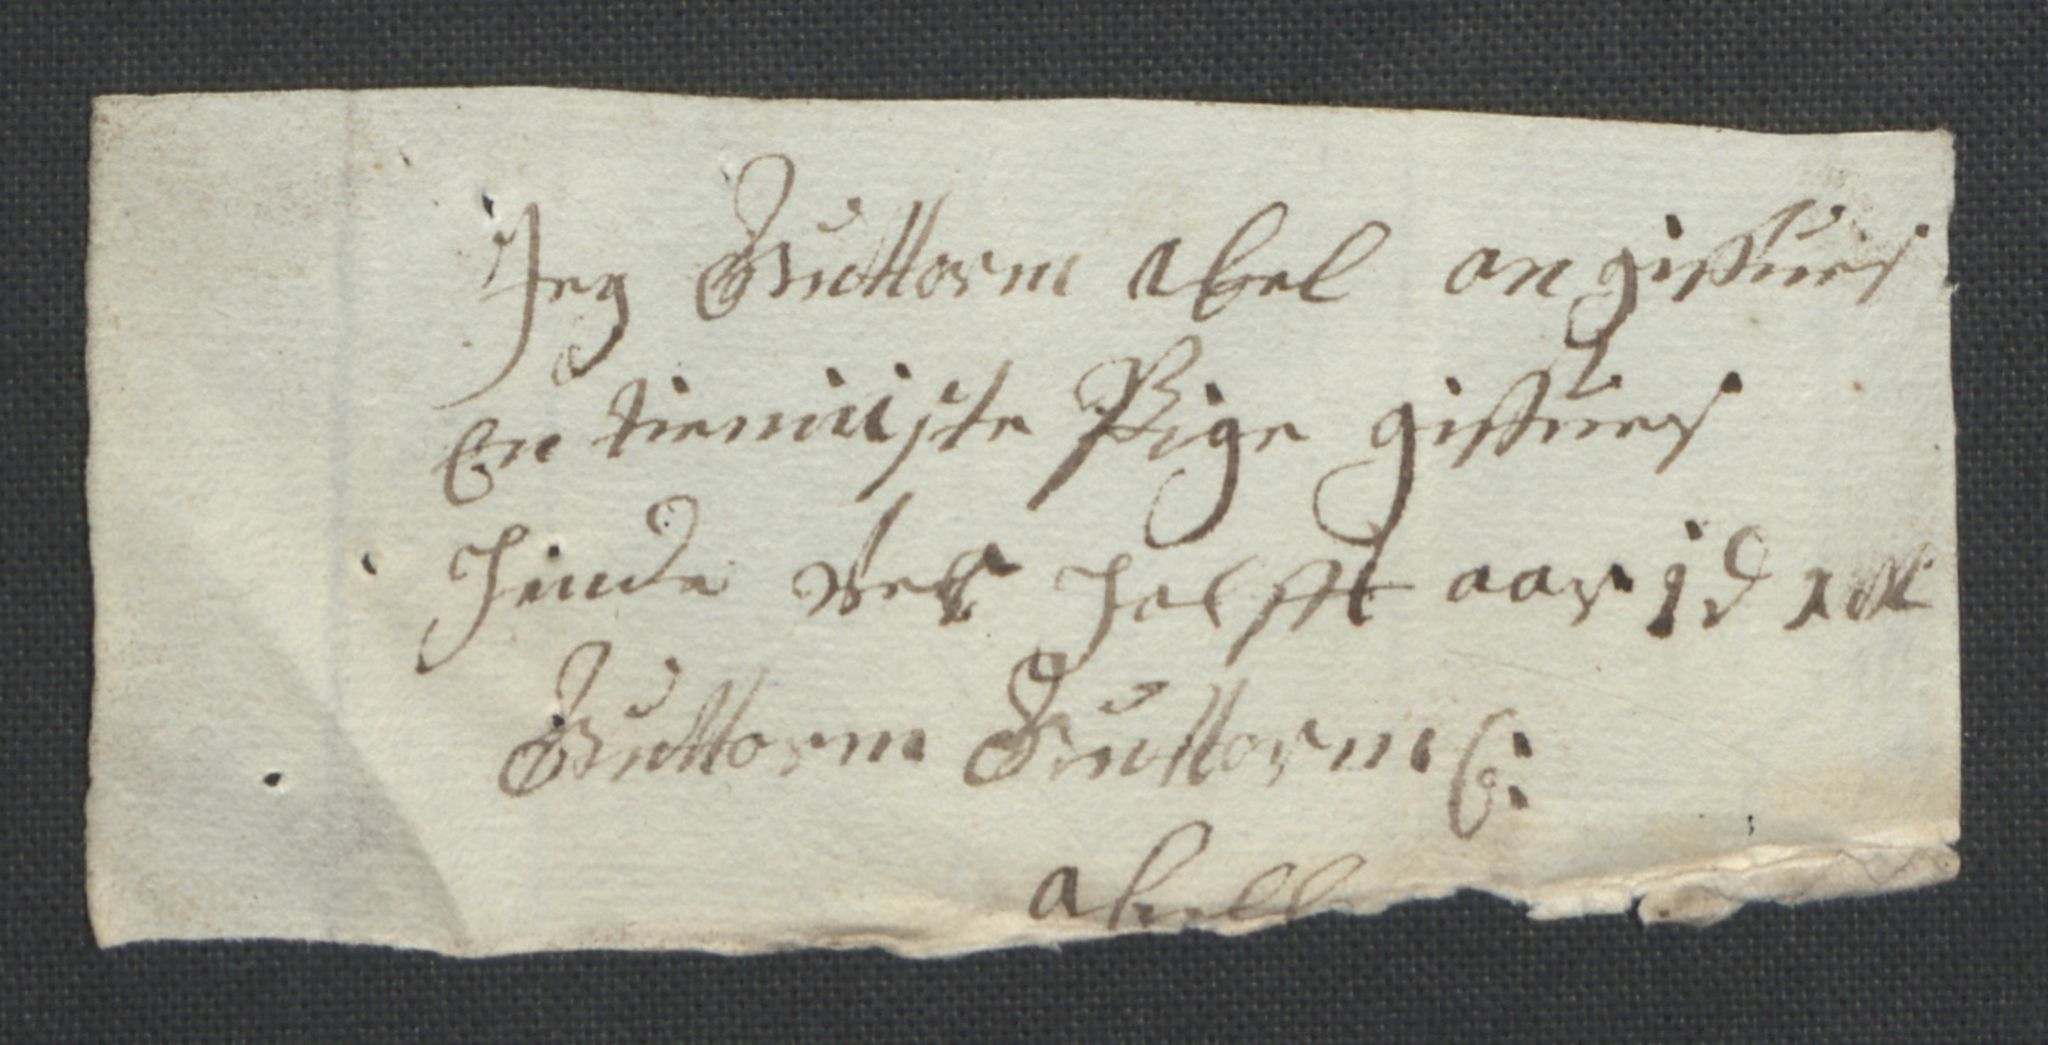 Jeg Guttorm Abel an gifвuer
En tieniste Pige gifuer
Hinde vds halfft aar 1 d
Guttorm Guttorms:
Abell